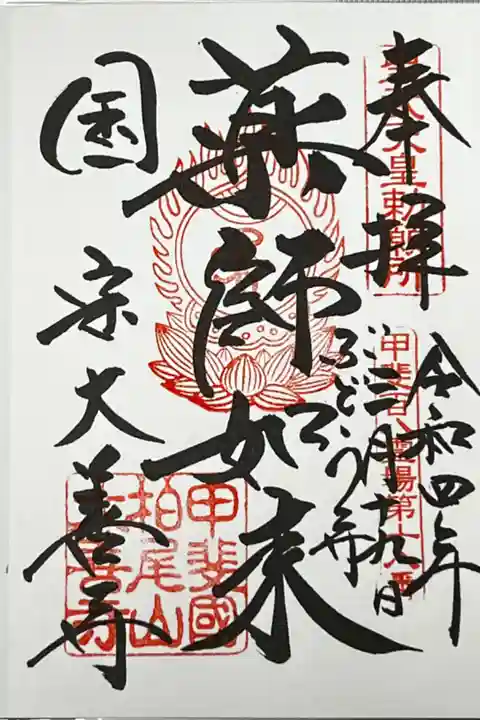 奉拝
聖武天皇勅願所
甲斐百八霊場第十八番
令和四年
三月十九日
薬師如来
ぶどう寺
国宝大善寺
甲斐國
柏尾山
大善寺